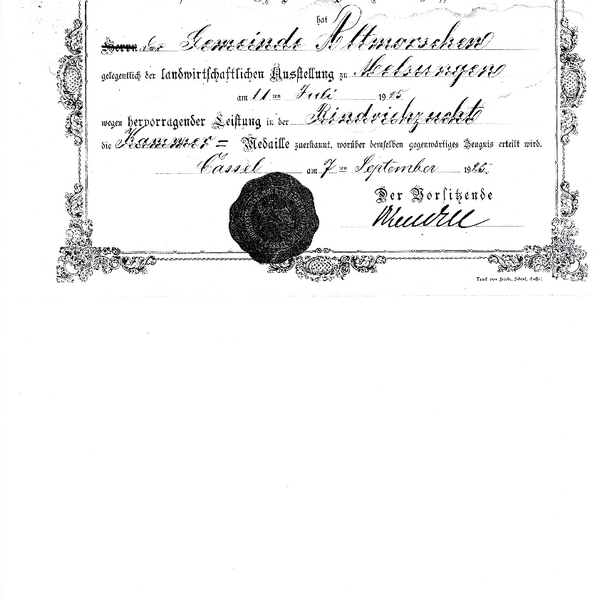 hat
Herrn der Gemeinde Altmorschen
gelegentlich der landwirtschaftlichen Ausstellung zu Melsungen
am 11ten Juli 1925
wegen hervorragender Leistung in der Rindviehzucht
die Kammer= Medaille zuerkannt, worüber demselben gegenwärtiges Zeugnis erteilt wird.
Cassel am 7ten September 1925.
Der Vorsitzende
Druck von